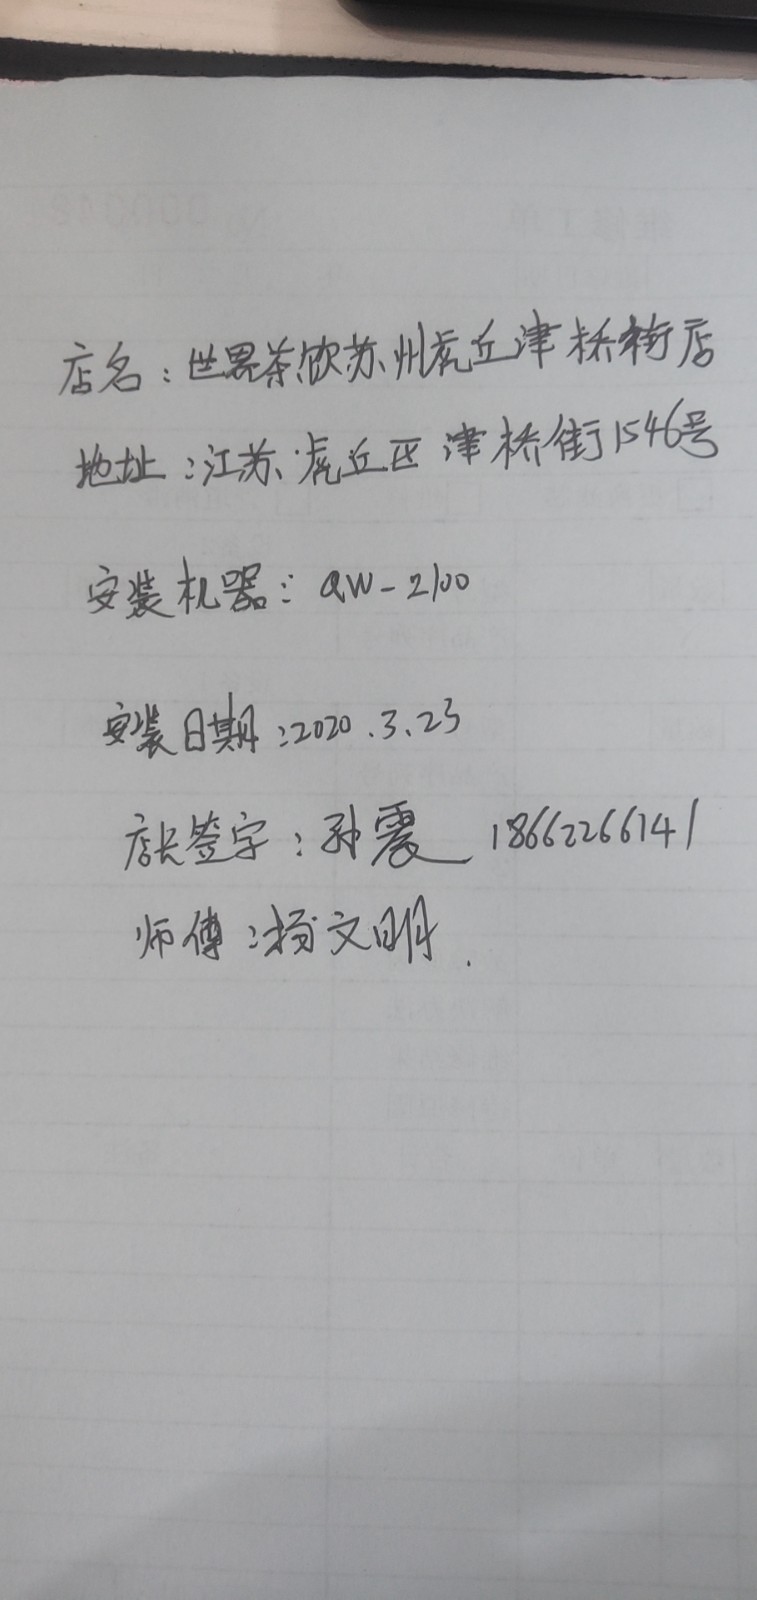 店名：世界茶饮苏州虎丘津桥街店
地址：江苏虎丘区津桥街1546号
安装机器：QW-2100
安装日期：2020.3.23
店长签字：孙震 18662266141
师傅：杨文明.